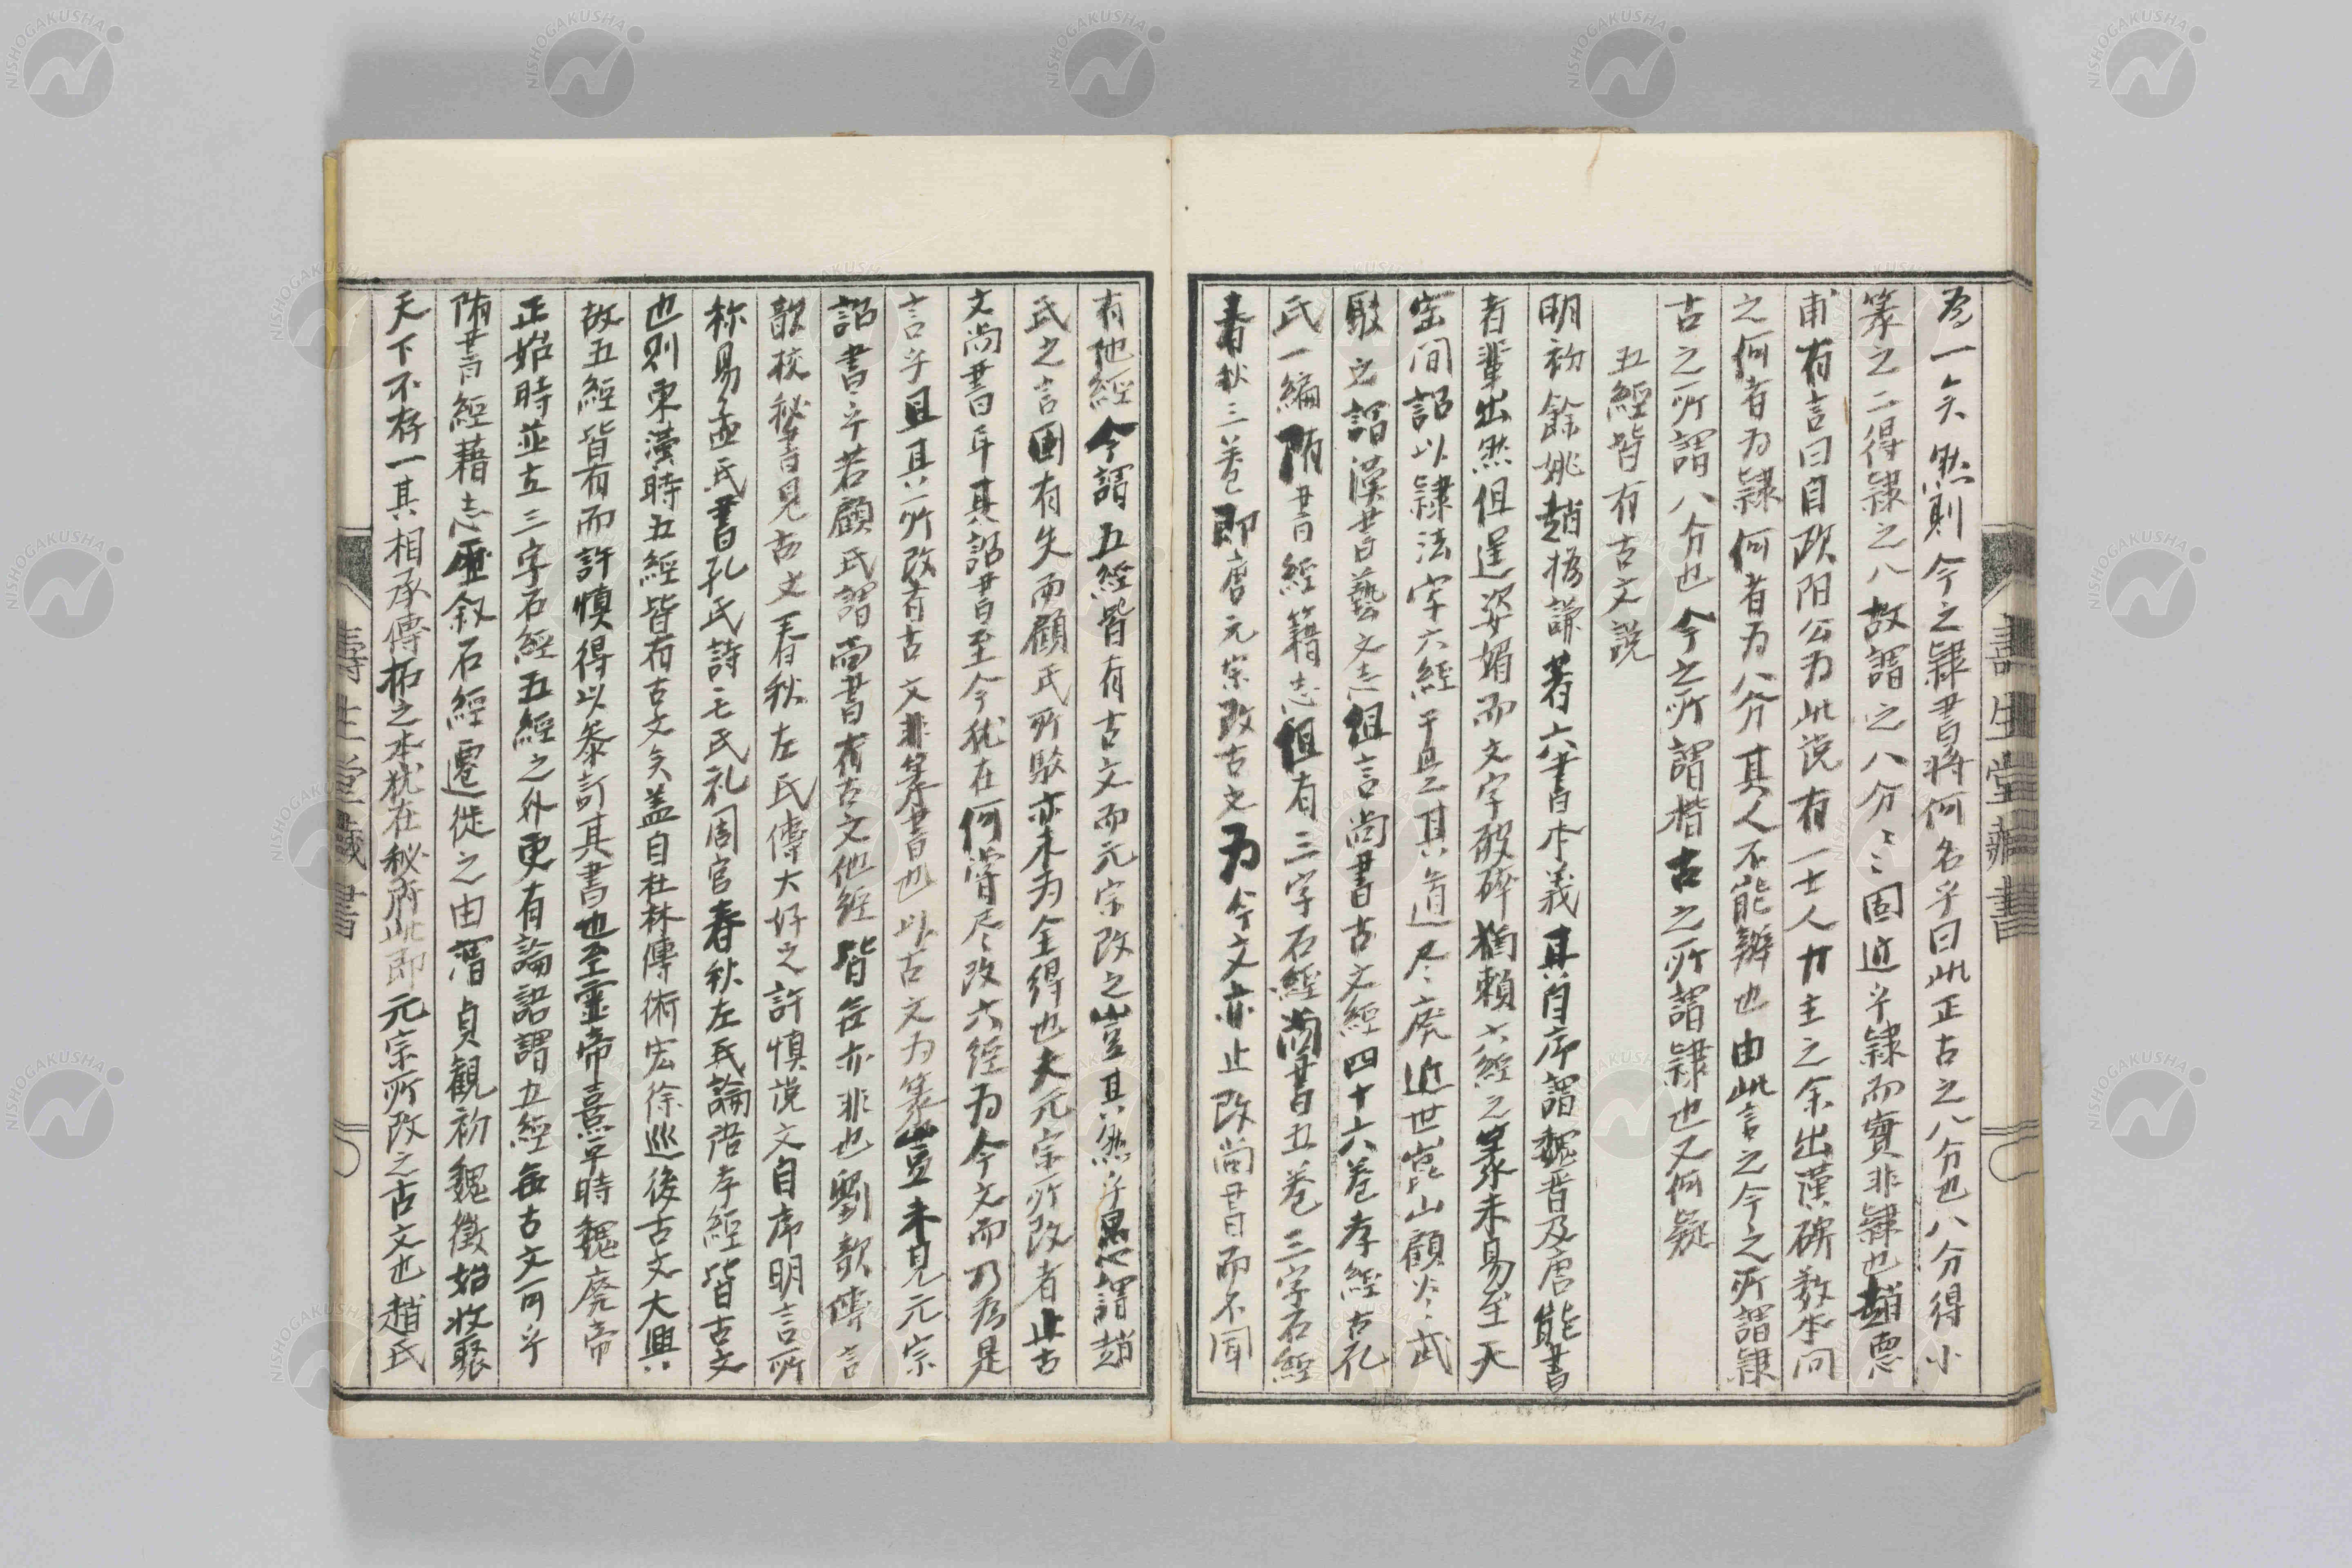 為一矣然則今之隷書將何名乎曰此正古之八分也八分得小
篆之二得隷之八故謂之八分〻〻固近乎隷而實非隷也趙悳
甫有言曰自欧阳公为此说有一士人廾主之余出漢碑数本问
之何者为隷何者为八分其人不能辨也由此言之今之所謂隷
古之所謂八分也今之所謂楷古之所謂隷也又何疑
五經皆有古文説
明初餘姚趙撝謙著六書本義其自序謂魏晋及唐能書
者輩出然但逞姿媚而文字破碎猶頼六經之篆未易至天
宝间詔以隷法字六經于是其道尽廃近世崑山顧炎武
駁之謂漢書藝文志但言尚書古文經四十六卷孝經古孔
氏一編隋書經籍志但有三字石經尚書五卷三字石經
春秋三卷即唐元宗改古文为今文亦止改尚書而不闻
有他經今謂五經皆有古文而元宗改之豈其然乎愚謂趙
氏之言固有失而顧氏所駁亦未为全得也夫元宗所改者止古
文尚書耳其詔書至今犹在何嘗尽改六經为今文而乃为是
言乎且其所改者古文非篆書也以古文为篆豈未見元宗
詔書乎若顧氏謂尚書有古文他經皆無亦非也劉歆傳言
歆校秘書見古文春秋左氏傳大好之許慎说文自序明言所
称易孟氏書孔氏詩毛氏礼周官春秋左氏論语孝經皆古文
也则東漢時五經皆有古文矣盖自杜林傳術宏徐巡後古文大興
故五經皆有而許慎得以叅訂其書也至霊帝熹平時魏廃帝
正始時並立三字石經五經之外更有論語謂五經無古文可乎
隋書經藉志歷叙石經遷徙之由谓貞観初魏徵始收聚
天下不存一其相承傳拓之本犹在秘府此即元宗所改之古文也趙氏
壽生堂藏書
壽生堂藏書
NISHOGAKUSHA